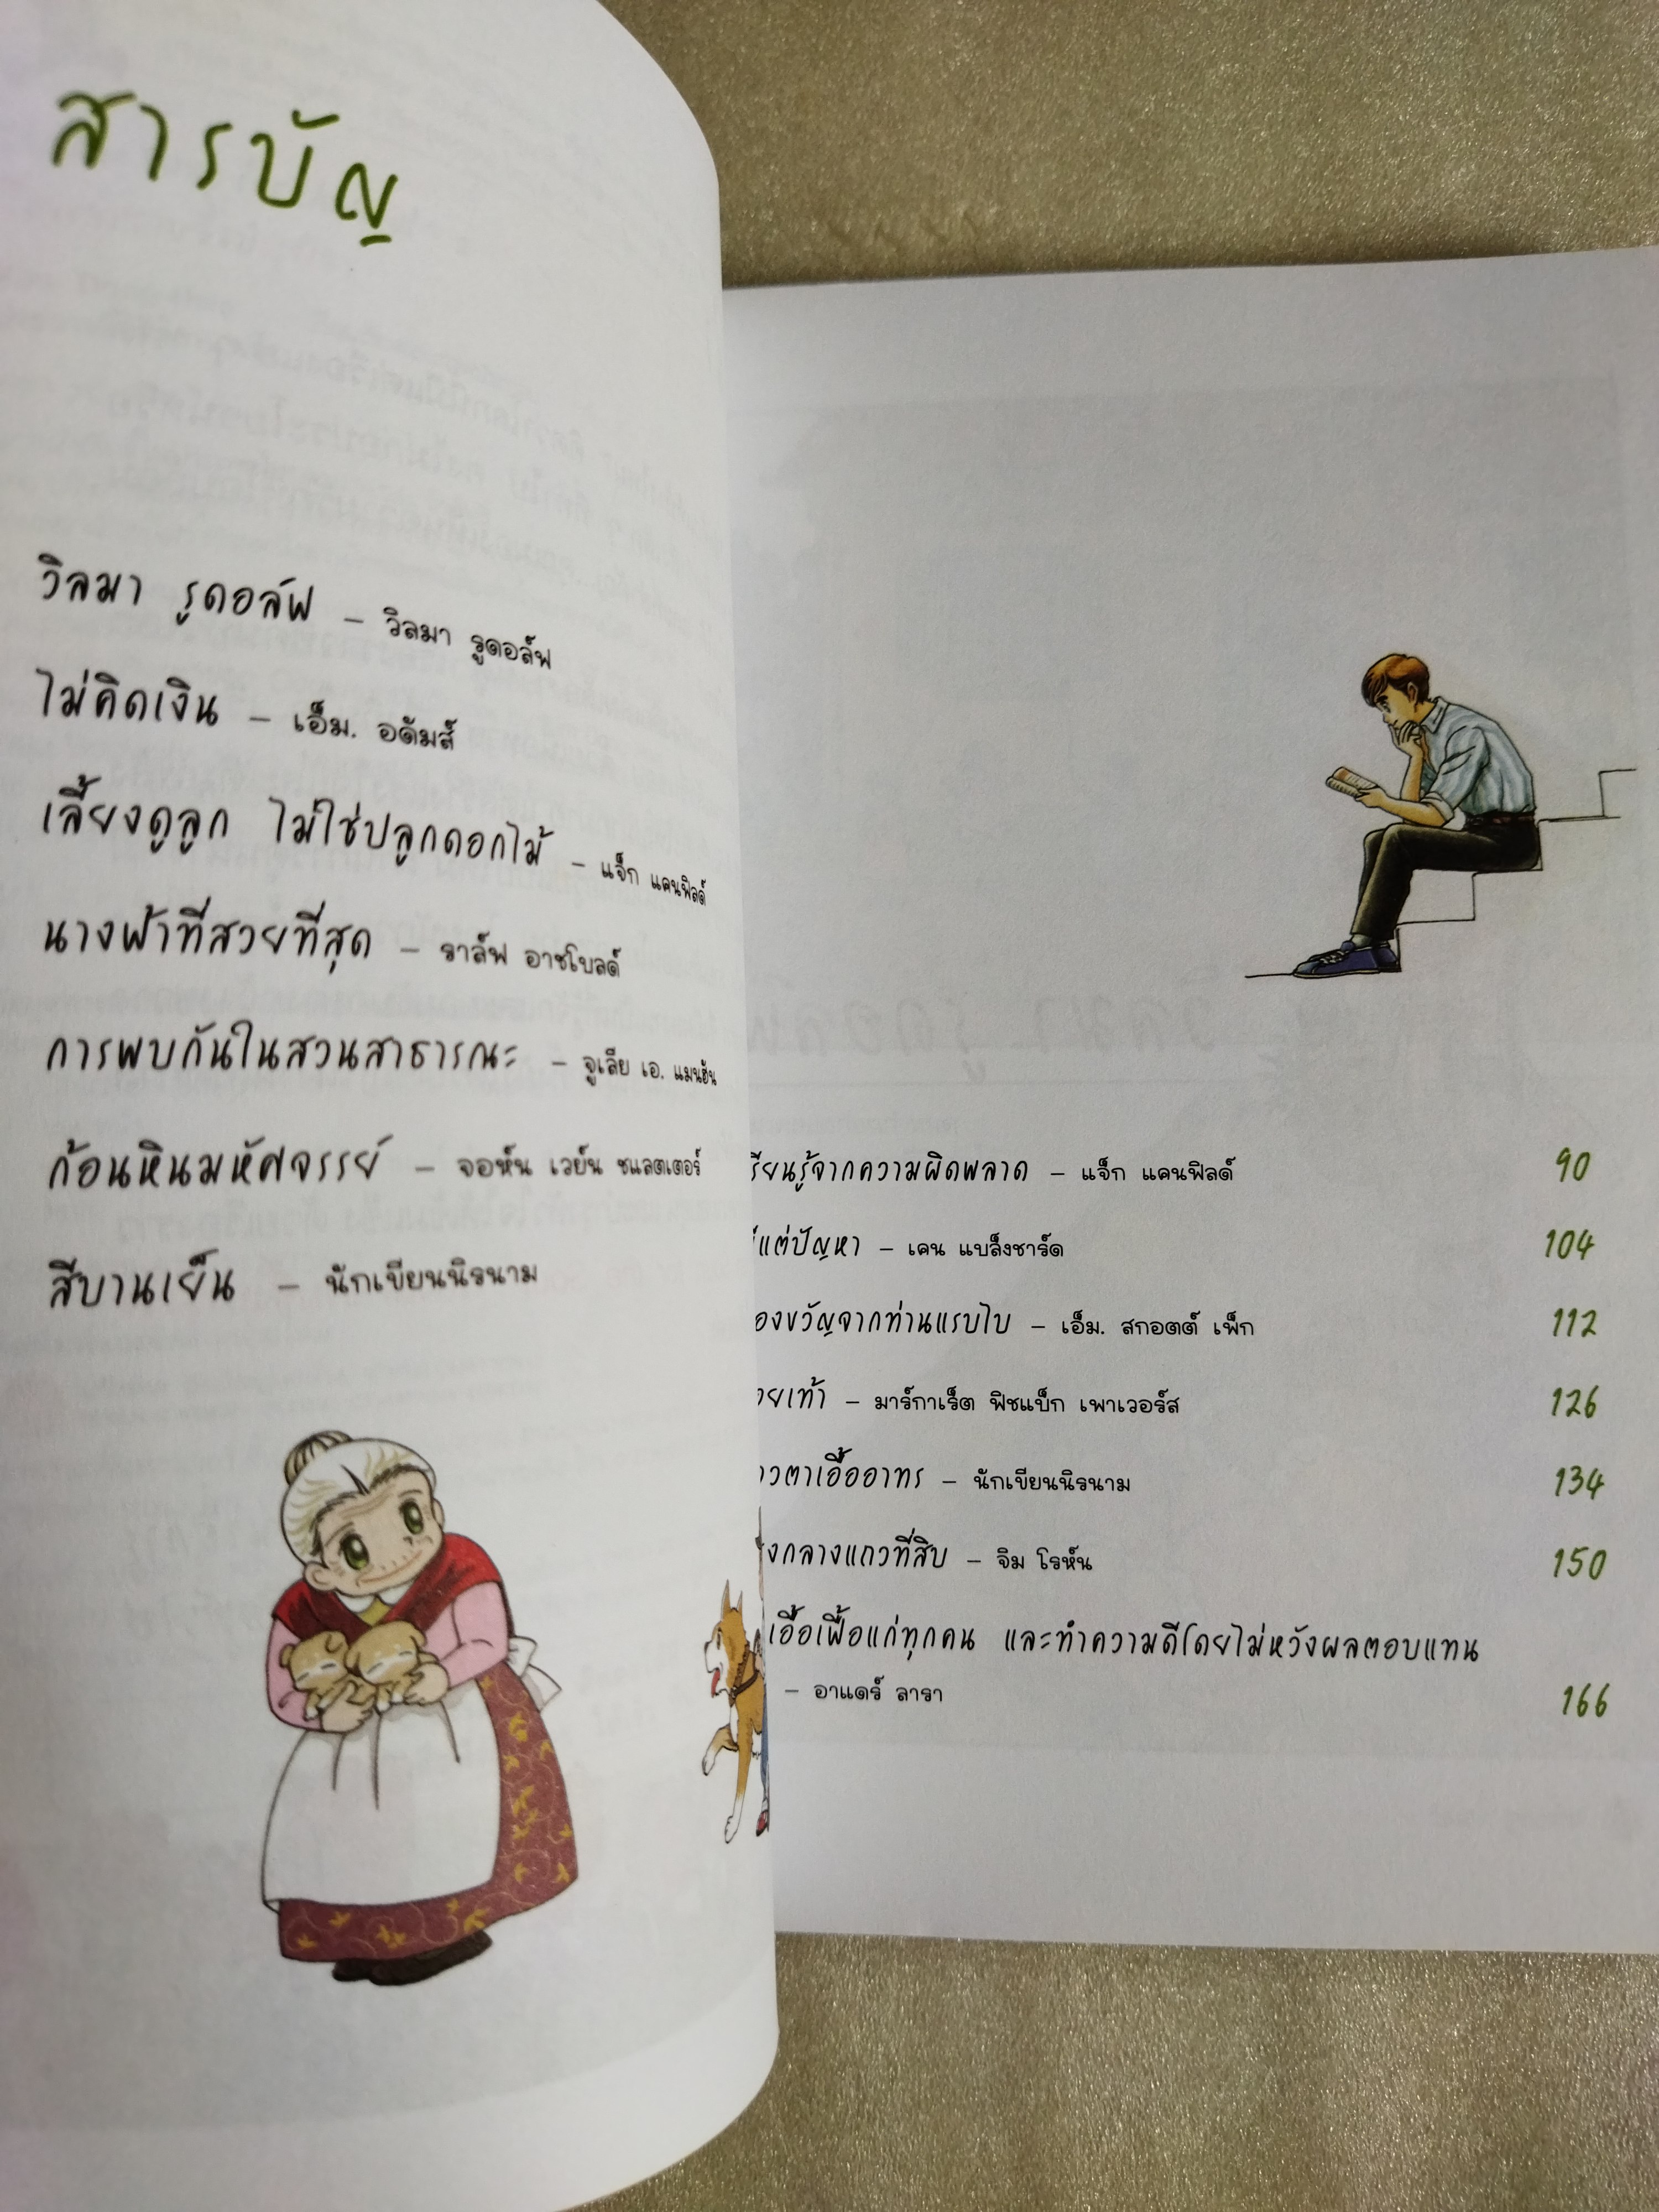 สารบัญ
วิลมา รูดอล์ฟ – วิลมา รูดอล์ฟ
ไม่คิดเงิน – เอ็ม. อดัมส์
เลี้ยงดูลูก ไม่ใช่ปลูกดอกไม้ – แจ็ก แคนฟิลด์
นางฟ้าที่สวยที่สุด – ราล์ฟ อาชโบลด์
การพบกันในสวนสาธารณะ – จูเลีย เอ. แมนฮัน
ก้อนหินมหัศจรรย์ – จอห์น เวย์น ชแลตเตอร์
สีบานเย็น – นักเขียนนิรนาม
รียนรู้จากความผิดพลาด – แจ็ก แคนฟิลด์ 90
แต่ปัญหา – เคน แบล็งชาร์ด 104
องขวัญจากท่านแรบไบ – เอ็ม. สกอตต์ เพ็ก 112
อยเท้า – มาร์กาเร็ต ฟิชแบ็ก เพาเวอร์ส 126
าวตาเอื้ออาทร – นักเขียนนิรนาม 134
งกลางแถวที่สิบ – จิม โรห์น 150
เอื้อเฟื้อแก่ทุกคน และทำความดีโดยไม่หวังผลตอบแทน
– อาแดร์ ลารา 166